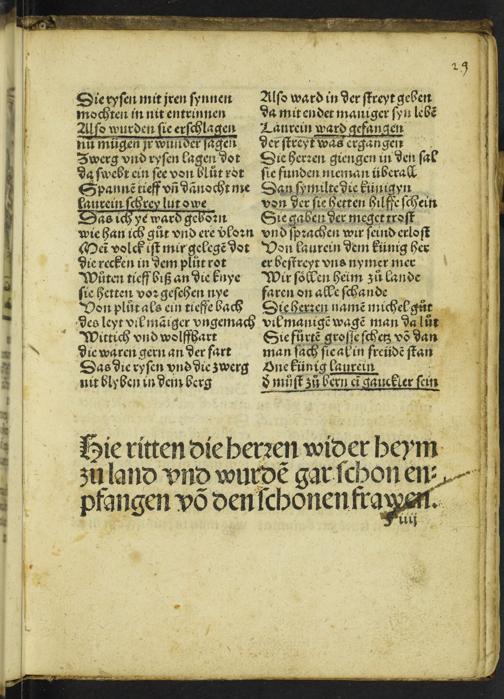 29
Die rysen mit jren synnen
mochten in nit entrinnen
Also wurden sie erschlagen
nu mügen jr wunder sagen
Zwerg vnd rysen lagen dot
da swebt ein see von blůt rot
Spannē tieff vñ dānocht me
laurein schrey lut owe
Das ich ye ward geborn
wie han ich gůt vnd ere vlorn
Mein volck ist mir gelegē dot
die recken in dem plůt rot
Wůten tieff biß an die knye
sie hetten vor gesehen nye
Von plůt als ein tieffe bach
des leyt vil māiger vngemach
Wittich vnd wolffhart
die waren gern an der fart
Das die rysen vnd die zwerg
nit blyben in dem berg
Also ward in der streyt geben
da mit endet maniger syn lebē
Laurein ward gefangen
der streyt was ergangen
Die herzen giengen in den sal
sie funden nieman überall
Dan symilte die künigyn
von der sie hetten hilffe schein
Sie gaben der meget trost
vnd sprachen wir seind erlost
Von laurein dem künig her
er bestreyt vns nymer mer
Wir söllen heim zů lande
faren on alle schande
Die herzen namē michel gůt
vil manigē wagē man da lůt
Sie fürtē grosse schetz vō dan
man sach sie al in freüdē stan
Dne künig laurein
d müst zů bern eī gauckler sein
Hie ritten die herzen wider heym
zů land vnd wurdē gar schon en⸗
pfangen vō den schönen frawen.
iiij